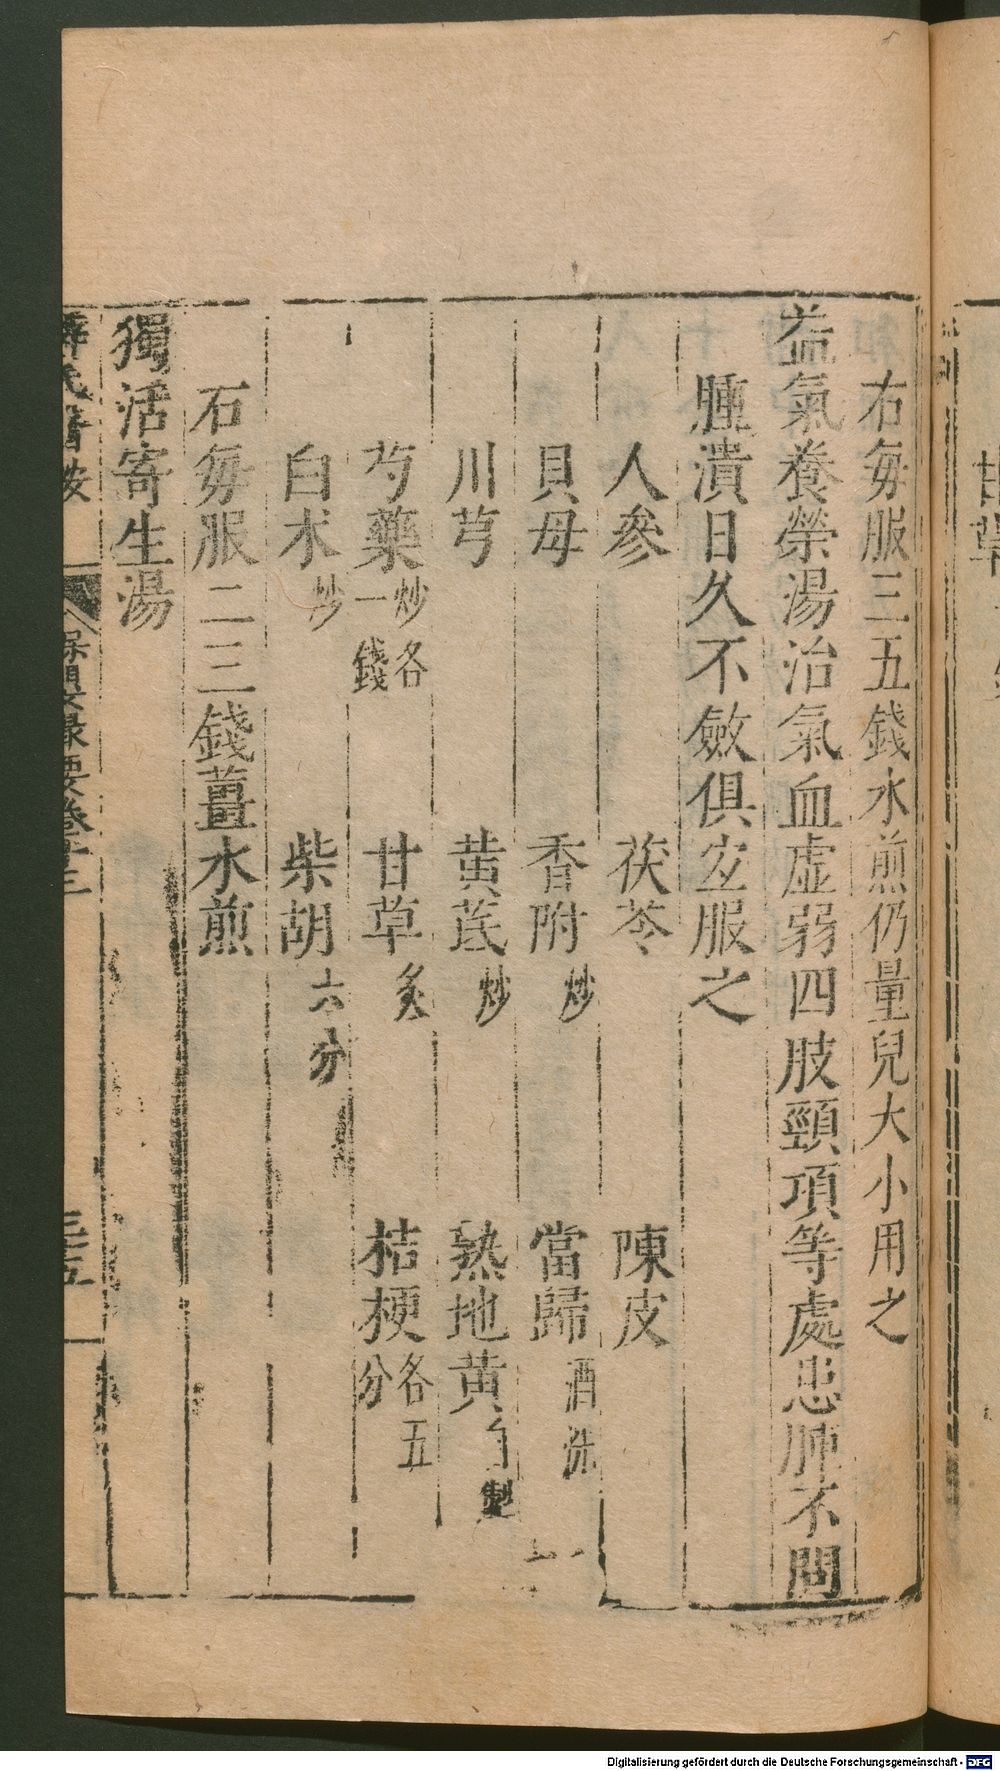 甘草
右每服三五錢水煎仍量兒大小用之
益氣養榮湯治氣血虛弱四肢頸項等處患腫不問
腫潰日久不斂俱宜服之
人參 茯苓 陳皮
貝母 香附炒 當歸酒洗
川芎 黃茋炒 熟地黃自製
芍藥炒各一錢 甘草炙 桔梗各五分
白术炒 柴胡六分
右每服二三錢薑水煎
獨活寄生湯
薛氏醫按 保嬰錄要卷十三 三五
Digitalisierung gefördert durch die Deutsche Forschungsgemeinschaft - DFG